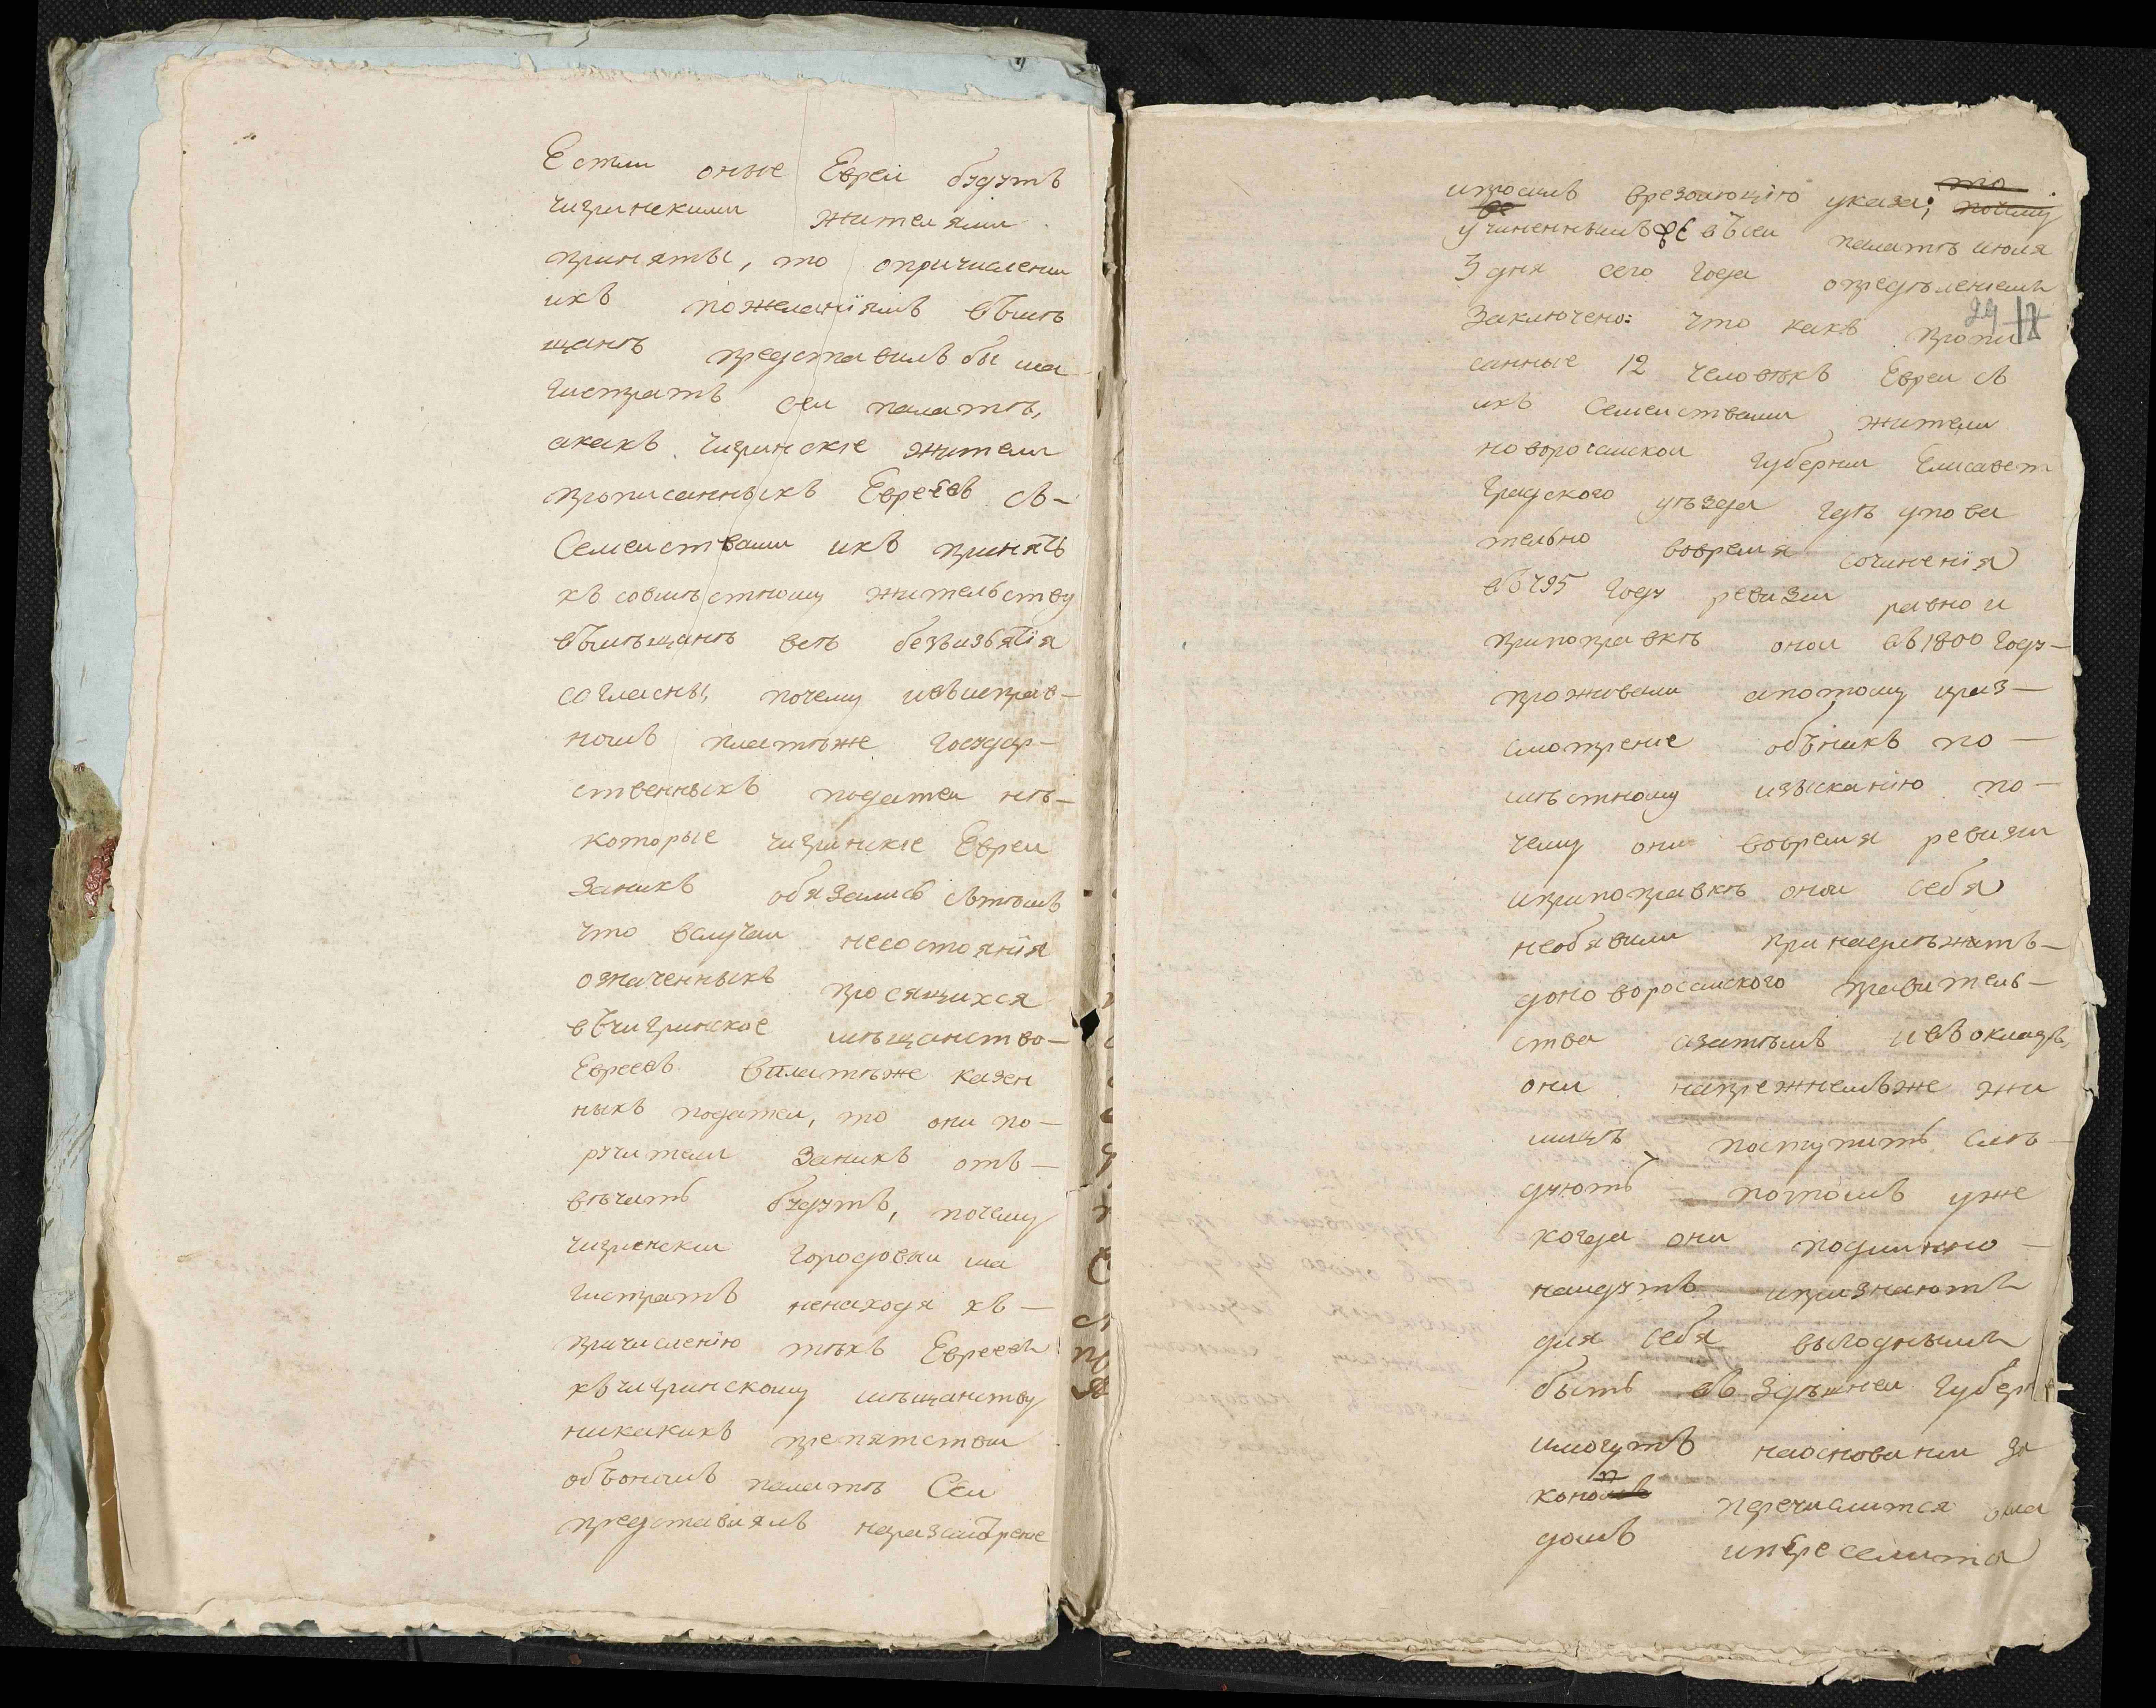 Естли оные Евреи будутъ
чигринскими жителями
приняты, то опричислении
ихъ пожеланіямъ вмѣ
щанѣ представилъ бы ма
гистратъ сеи палатѣ,
акакъ чигринскіе жители
прописанныхъ Евреевъ съ-
Семеиствами ихъ принять
къ совмѣстному жительству
вмѣщанѣ всѣ безъизьятія
согласны, почему ивъисправ-
номъ платѣже Государ-
ственныхъ податеи нѣ-
которые чигринскіе Евреи
заникъ обязались стѣмъ
что вслучаи несостоянія
означенныхъ просящихся
въчигринское мѣщанство-
Евреевъ вплатѣже казен
ныхъ податеи, то они по-
ручители заникъ отъ-
вѣчать будутъ, почему
чигринскіи городовыи ма
гистратъ ненаходя къ-
причисленію тѣхъ Евреевъ
къчигринскому мѣщанству
никакихъ препятствіи
объономъ палатѣ Сеи
представлялъ наразсмотрѣніе
ипросилъ врезолюцію указа; то почему
учиненнымъ въ сеи палатѣ июля
3 дня сего года опредѣленіемъ
29 12
Заключено: что какъ пропи
санные 12 человѣкъ Евреи съ
ихъ Семеиствами жители
новоросіискои губерніи Елисавет
градского уѣзда гдѣ упова
тельно вовремя сочиненія
въ 795 году ревизіи равно и
припоправкѣ онои въ 1800 году-
проживали апотому ираз-
смотреніе объникъ по-
мѣстному изысканію по-
чему они вовремя ревизіи
иприпоправкѣ онои себя
необявили принадлѣжитъ-
доноворосіиского правитель-
ства азатѣмъ ивъокладъ
они напрежнемъже жи
лищѣ поступить слѣ-
дуютъ потомъ уже
когда они подлинно-
наидутъ ипризнаютъ
для себя выгоднымъ
быть въ здѣшнеи Губерн
имогутъ наоснованіи за
коно перечислится ома
домъ ипереселится